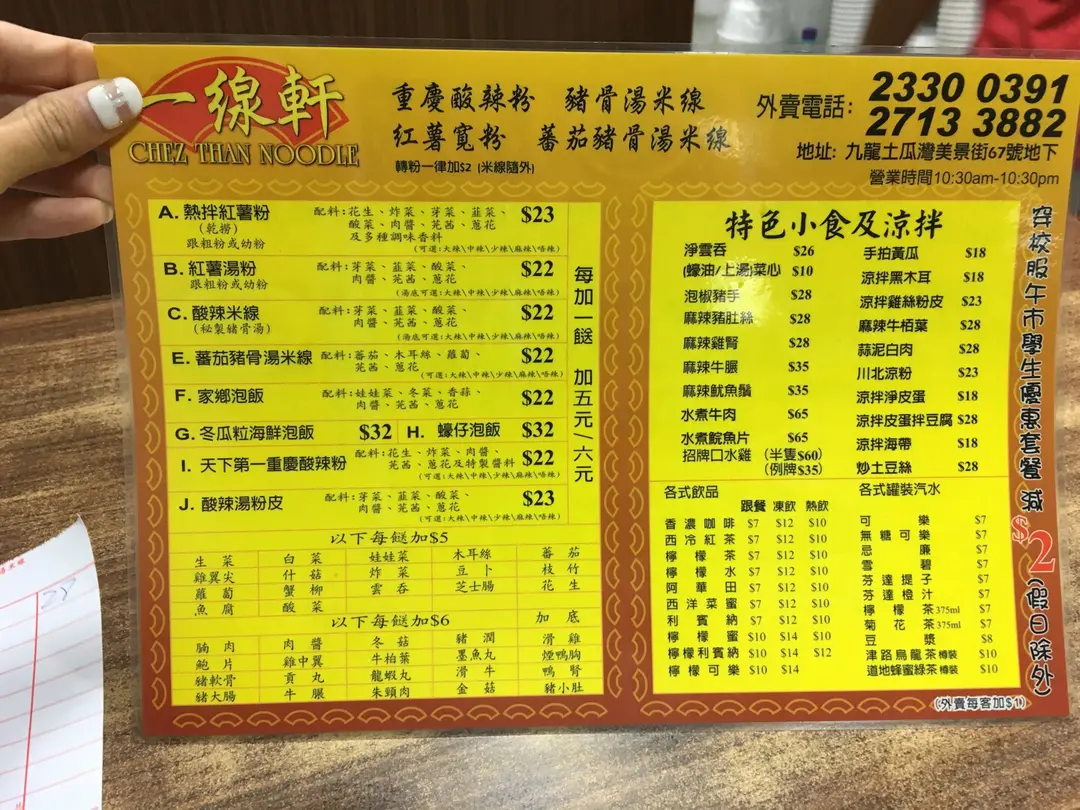 一線軒
CHEZ THAN NOODLE
重慶酸辣粉 豬骨湯米線
紅薯寬粉 蕃茄豬骨湯米線
轉粉一律加$2 (米線隨外)
外賣電話: 2330 0391
2713 3882
地址: 九龍土瓜灣美景街67號地下
營業時間10:30am-10:30pm
A. 熱拌紅薯粉 配料:花生、炸菜、芽菜、韮菜、 $23
(乾撈) 酸菜、肉醬、芫茜、蔥花
跟粗粉或幼粉 及多種調味香料
(可選:大辣\中辣\少辣\麻辣\唔辣)
B. 紅薯湯粉 配料:芽菜、韮菜、酸菜、 $22
跟粗粉或幼粉 肉醬、芫茜、蔥花
(湯底可選:大辣\中辣\少辣\麻辣\唔辣)
C. 酸辣米線 配料:芽菜、韮菜、酸菜、 $22
(秘製豬骨湯) 肉醬、芫茜、蔥花
(湯底可選:大辣\中辣\少辣\麻辣\唔辣)
E. 蕃茄豬骨湯米線 配料:蕃茄、木耳絲、蘿蔔、 $22
芫茜、蔥花
(可選:大辣\中辣\少辣\麻辣\唔辣)
F. 家鄉泡飯 配料:娃娃菜、冬菜、香蒜、 $22
肉醬、芫茜、蔥花
G. 冬瓜粒海鮮泡飯 $32 H. 蠔仔泡飯 $32
I. 天下第一重慶酸辣粉 配料:花生、炸菜、肉醬、 $22
芫茜、蔥花及特製醬料
(可選:大辣\中辣\少辣\麻辣\唔辣)
J. 酸辣湯粉皮 配料:芽菜、韮菜、酸菜、 $23
肉醬、芫茜、蔥花
(可選:大辣\中辣\少辣\麻辣\唔辣)
每加一餸 加五元/六元
以下每餸加$5
生菜 白菜 娃娃菜 木耳絲 蕃茄
雞翼尖 什菇 炸菜 豆卜 枝竹
蘿蔔 蟹柳 雲吞 芝士腸 花生
魚腐 酸菜
以下每餸加$6 加底
腩肉 肉醬 冬菇 豬潤 滑雞
鮑片 雞中翼 牛柏葉 墨魚丸 煙鴨胸
豬軟骨 貢丸 龍蝦丸 滑牛 鴨腎
豬大腸 牛𦟌 朱頸肉 金菇 豬小肚
特色小食及涼拌
淨雲吞 $26 手拍黃瓜 $18
(蠔油/上湯)菜心 $10 涼拌黑木耳 $18
泡椒豬手 $28 涼拌雞絲粉皮 $23
麻辣豬肚絲 $28 麻辣牛栢葉 $28
麻辣雞腎 $28 蒜泥白肉 $28
麻辣牛𦟌 $35 川北涼粉 $23
麻辣魷魚鬚 $35 涼拌淨皮蛋 $18
水煮牛肉 $65 涼拌皮蛋拌豆腐 $28
水煮鯇魚片 $65 涼拌海帶 $18
招牌口水雞 (半隻$60) 炒土豆絲 $28
(例牌$35)
各式飲品
跟餐 凍飲 熱飲
香濃咖啡 $7 $12 $10
西冷紅茶 $7 $12 $10
檸檬茶 $7 $12 $10
檸檬水 $7 $12 $10
阿華田 $7 $12 $10
西洋菜蜜 $7 $12 $10
利賓納 $7 $12 $10
檸檬蜜 $10 $14 $10
檸檬利賓納 $10 $14 $12
檸檬可樂 $10 $14
各式罐裝汽水
可樂 $7
無糖可樂 $7
忌廉 $7
雪碧 $7
芬達提子 $7
芬達橙汁 $7
檸檬茶375ml $7
菊花茶375ml $7
豆漿 $8
津路烏龍茶樽裝 $10
道地蜂蜜綠茶樽裝 $10
(外賣每客加$1)
穿校服午市學生優惠套餐 減$2(假日除外)